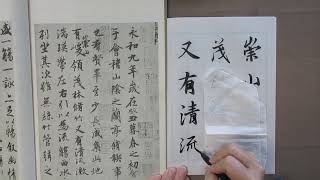 崇
茂
又有清流
永和九年歲在癸丑暮春之初會
于會稽山陰之蘭亭脩稧事
也羣賢畢至少長咸集此地
有崇山峻領茂林脩竹又有清流激
湍暎帶左右引以為流觴曲水
列坐其次雖無絲竹管弦之
盛一觴一詠亦足以暢叙幽情